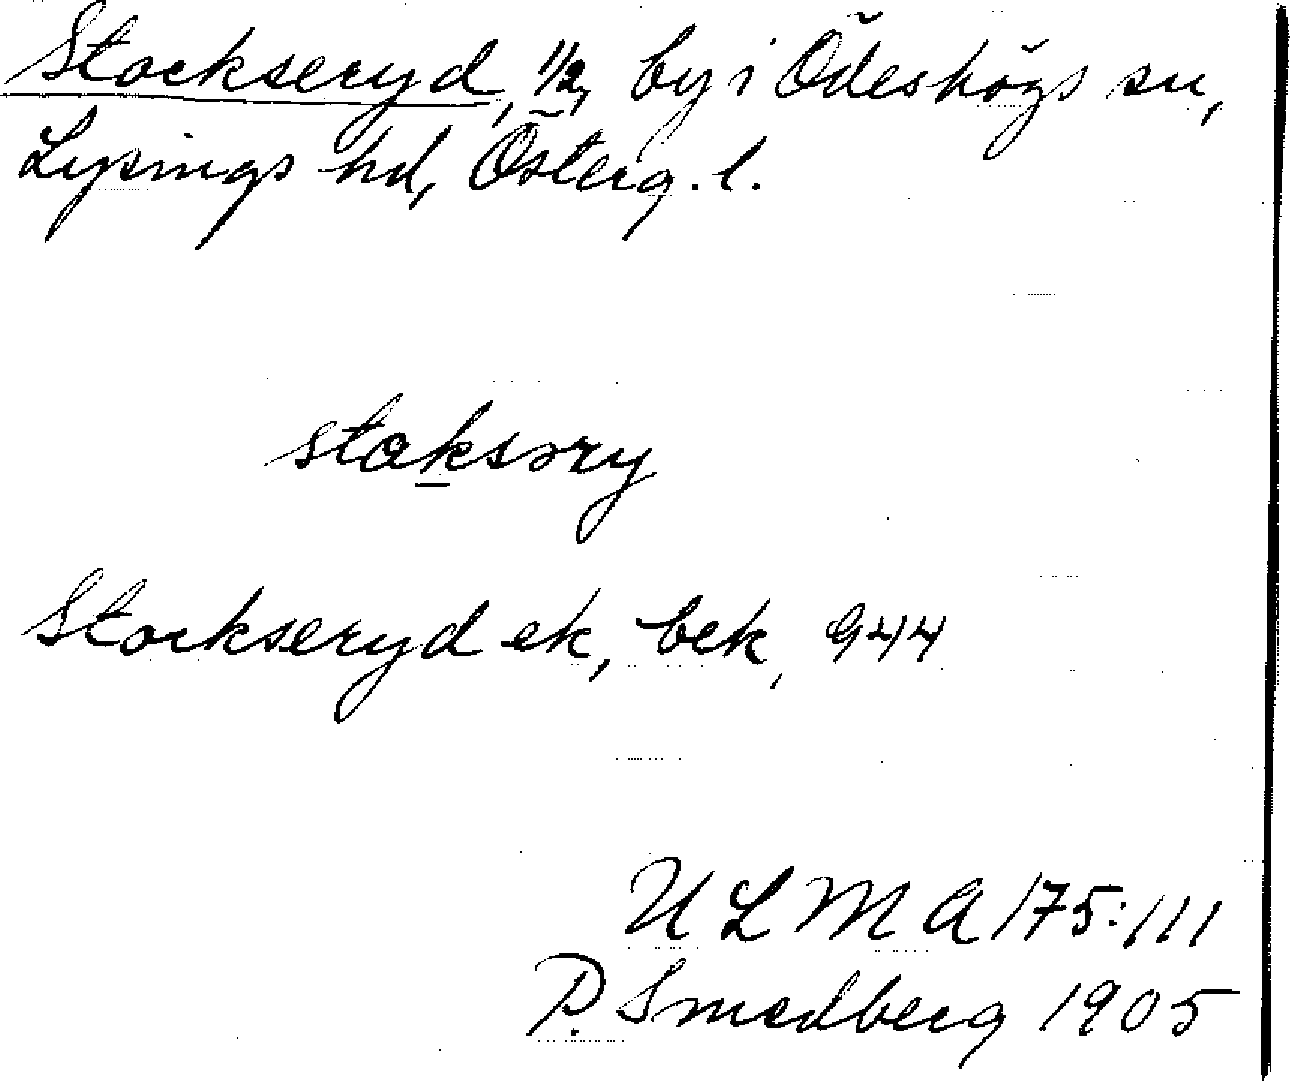 Stockseryd, 1/2, by i Ödeshögs sn,
Lysings hd, Österg. l.
stoksəry
Stockseryd ek, bek, 944
ULMA 175:111
P. Smedberg 1905